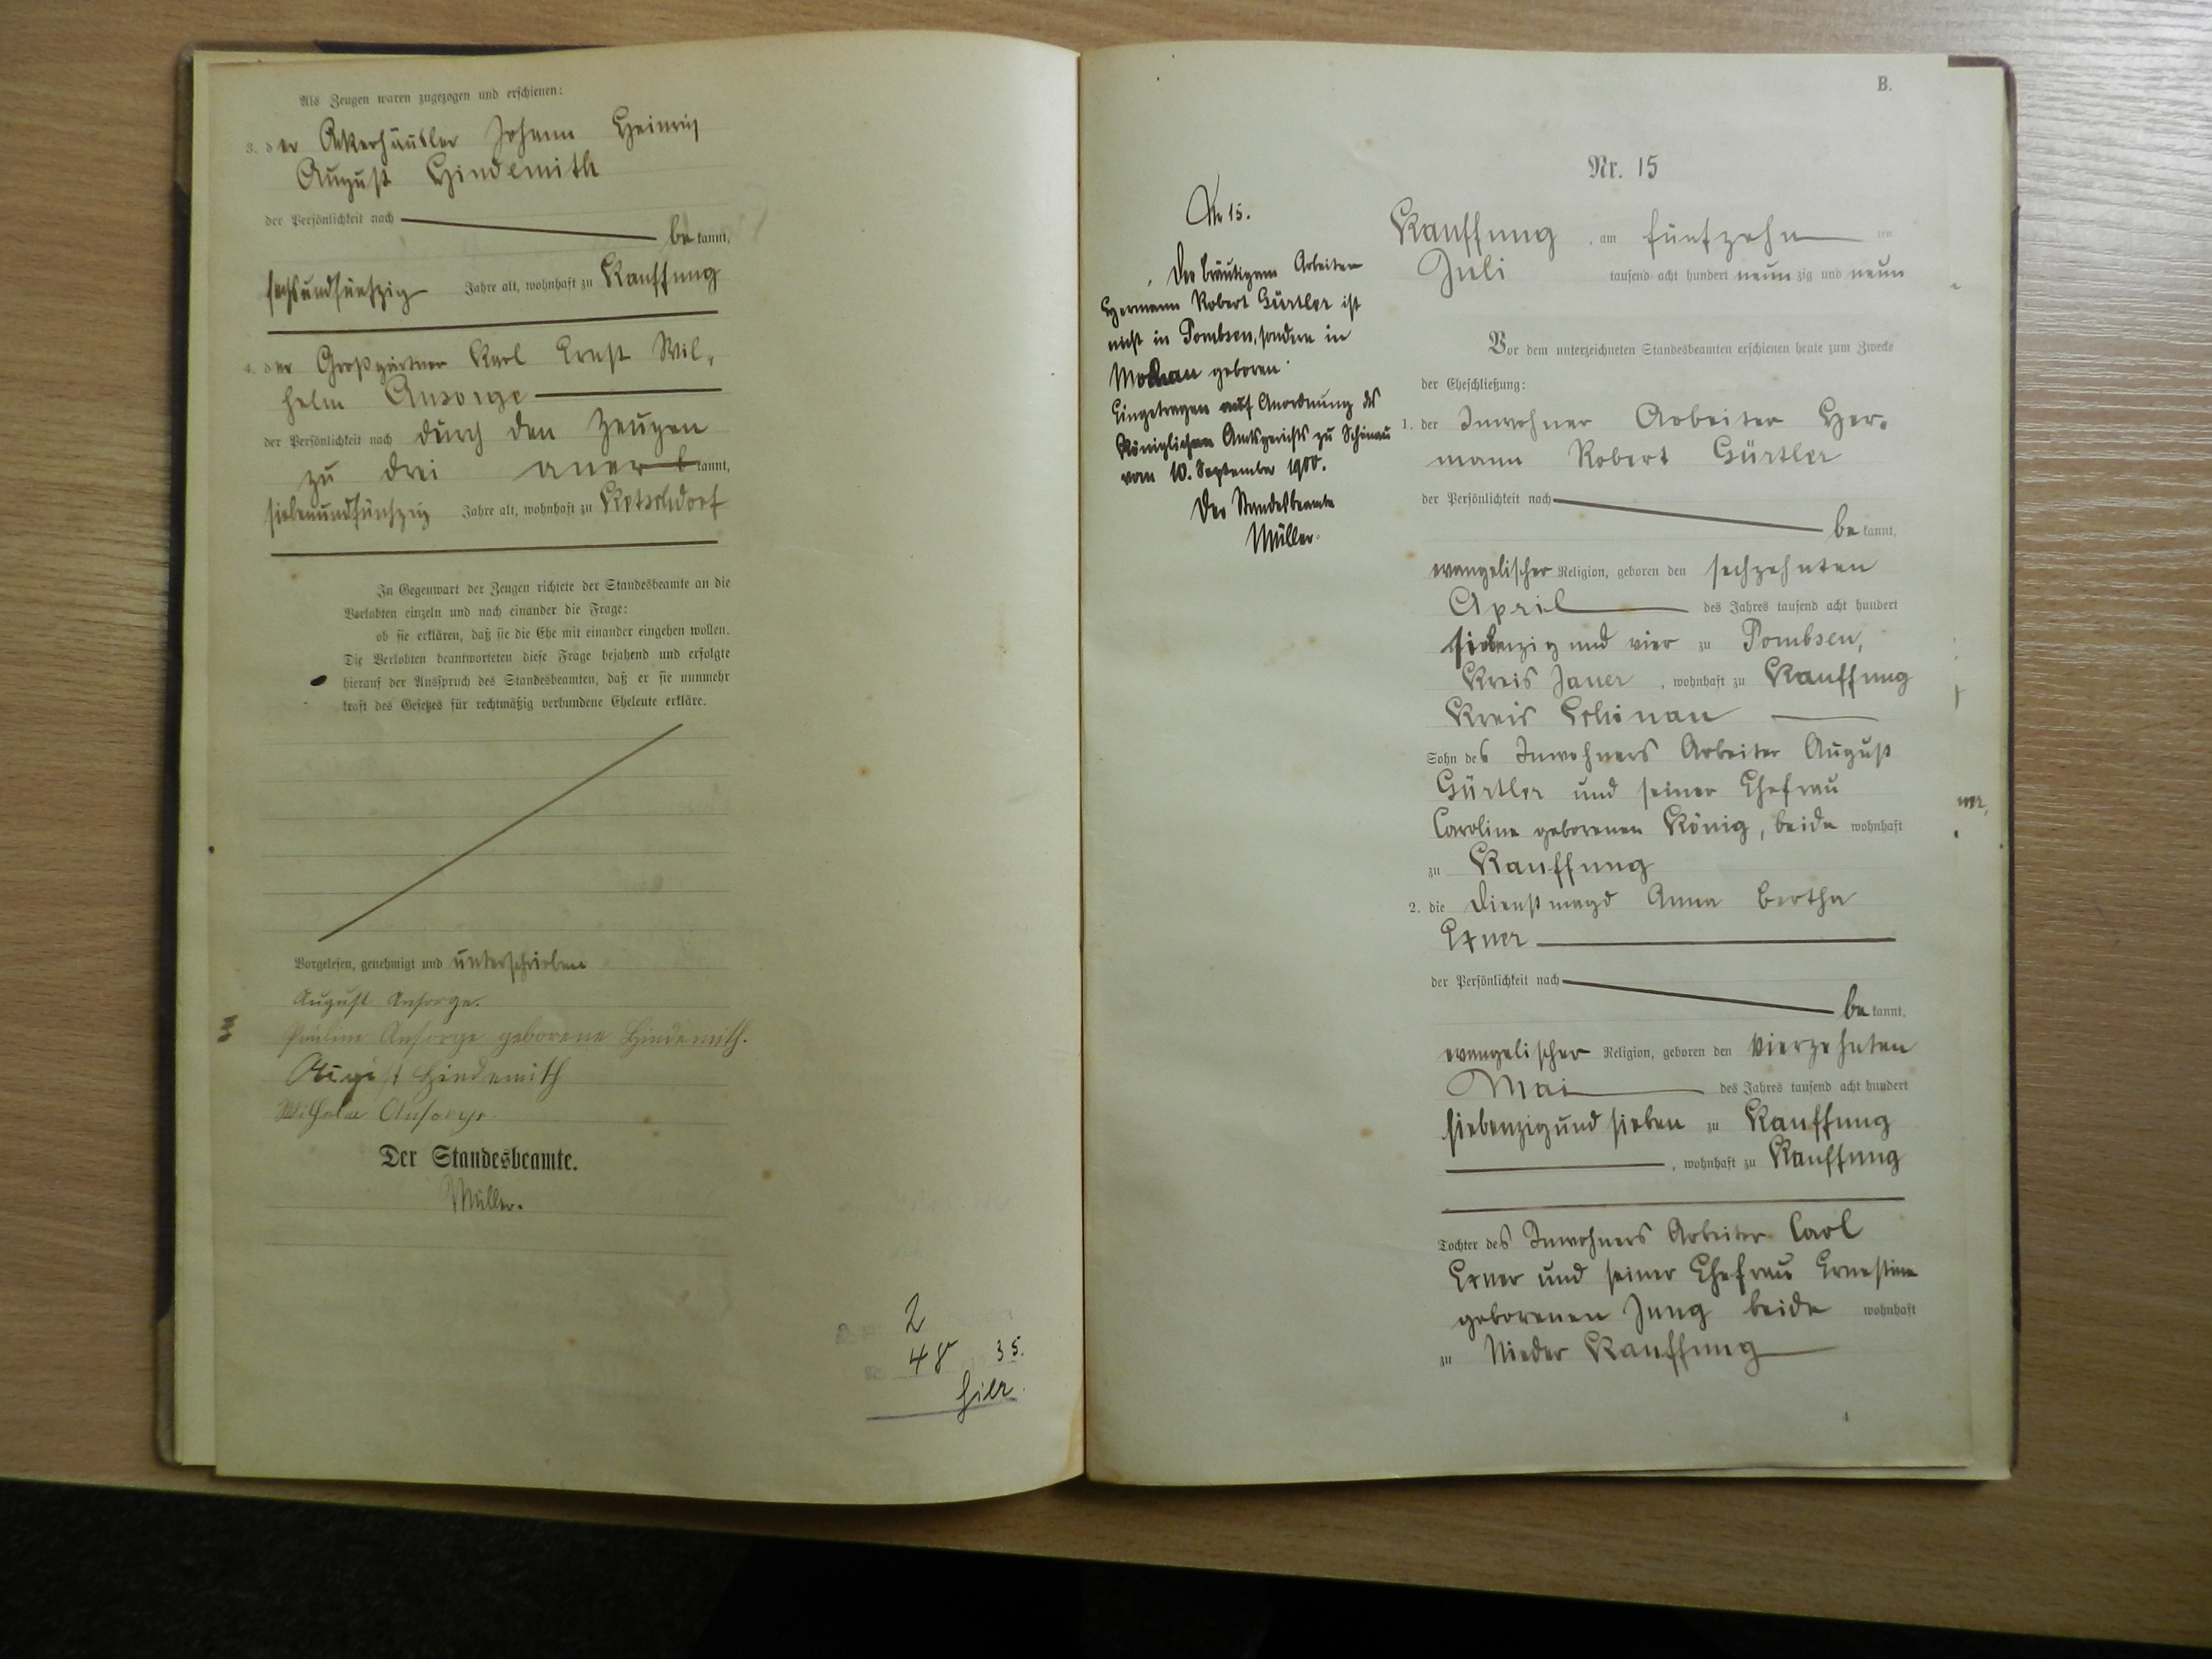 Als Zeugen waren zugezogen und erschienen:
3. der Ackerhäusler Johann Heinrich
August Hindemith
der Persönlichkeit nach
bekannt,
sechsundfünfzig Jahre alt, wohnhaft zu Kauffung
4. der Großgärtner Karl Ernst Wil-
helm Ansorge
der Persönlichkeit nach durch den Zeugen
zu drei anerkannt,
siebenundfünfzig Jahre alt, wohnhaft zu Ketschdorf
In Gegenwart der Zeugen richtete der Standesbeamte an die
Verlobten einzeln und nach einander die Frage:
ob sie erklären, daß sie die Ehe mit einander eingehen wollen.
Die Verlobten beantworteten diese Frage bejahend und erfolgte
hierauf der Ausspruch des Standesbeamten, daß er sie nunmehr
kraft des Gesetzes für rechtmäßig verbundene Eheleute erkläre.
Vorgelesen, genehmigt und unterschrieben
August Ansorge.
Pauline Ansorge geborene Hindemith.
August Hindemith
Wilhelm Ansorge
Der Standesbeamte.
Müller.
2
48 35.
B.
Nr. 15
Nr 15.
Der Bräutigam Arbeiter
Hermann Robert Gürtler ist
nicht in Pombsen, sondern in
Mochau geboren.
Eingetragen auf Anordnung des
Königlichen Amtsgerichts zu Schönau
vom 10. September 1900.
Der Standesbeamte
Müller.
Kauffung, am fünfzehnten
Juli tausend acht hundert neunzig und neun
Vor dem unterzeichneten Standesbeamten erschienen heute zum Zwecke
der Eheschließung:
1. der Inwohner Arbeiter Her-
mann Robert Gürtler
der Persönlichkeit nach
bekannt,
evangelischer Religion, geboren den sechzehnten
April des Jahres tausend acht hundert
siebenzig und vier zu Pombsen,
Kreis Jauer, wohnhaft zu Kauffung
Kreis Schönau
Sohn des Inwohners Arbeiter August
Gürtler und seiner Ehefrau
Caroline geborenen König, beide wohnhaft
zu Kauffung
2. die Dienstmagd Anna Bertha
Exner
der Persönlichkeit nach
bekannt,
evangelischer Religion, geboren den vierzehnten
Mai des Jahres tausend acht hundert
siebenzig und sieben zu Kauffung
, wohnhaft zu Kauffung
Tochter des Inwohners Arbeiter Carl
Exner und seiner Ehefrau Ernestine
geborenen Jung beide wohnhaft
zu Nieder Kauffung